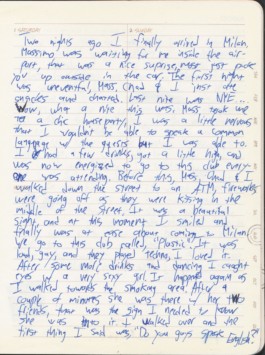 Two nights ago I finally arrived in Milan.
Massimo, was waiting for me inside the air-
port, that was a nice surprize, most just pick
you up outside in the car. The first night
was uneventful, Mass, Chad & I just ate
and chatted. Last nite was NYE -
Wow, what a nite this was. Mass, Chad & me
a chic house party, I was a little nervous
that I wouldnt be able to speak a common
language w/ the guests but I was able to.
I had a few drinks, got a little high, and
was now energized to go to this club party
was attending. Before this, Mass, Chad & I
walked down the street to an ATM, fireworks
were going off as they were kissing in the
middle of the street. It was a beautiful
sight and at this moment I smiled and
finally was at ease coming to Milan.
We go to this club called, "Plastic". It was
loud, gay, and they played techno, I loved it.
After some more drinks and dancing I caught
eyes w/ a very sexy girl. It happened again as
I walked towards the smoking area. After a
couple of minutes she was there w/ her
friends, that was the sign I needed to know
she was into it. I walked over and the
first thing I said was, "Do you guys speak English?"